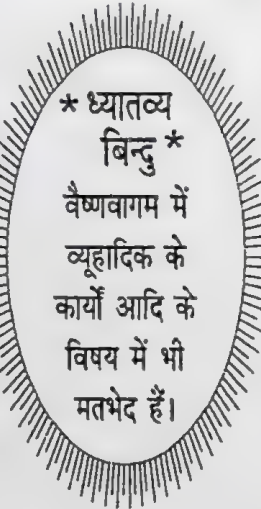 * ध्यातव्य
बिन्दु *
वैष्णवागम में
व्यूहादिक के
कार्यों आदि के
विषय में भी
मतभेद हैं।